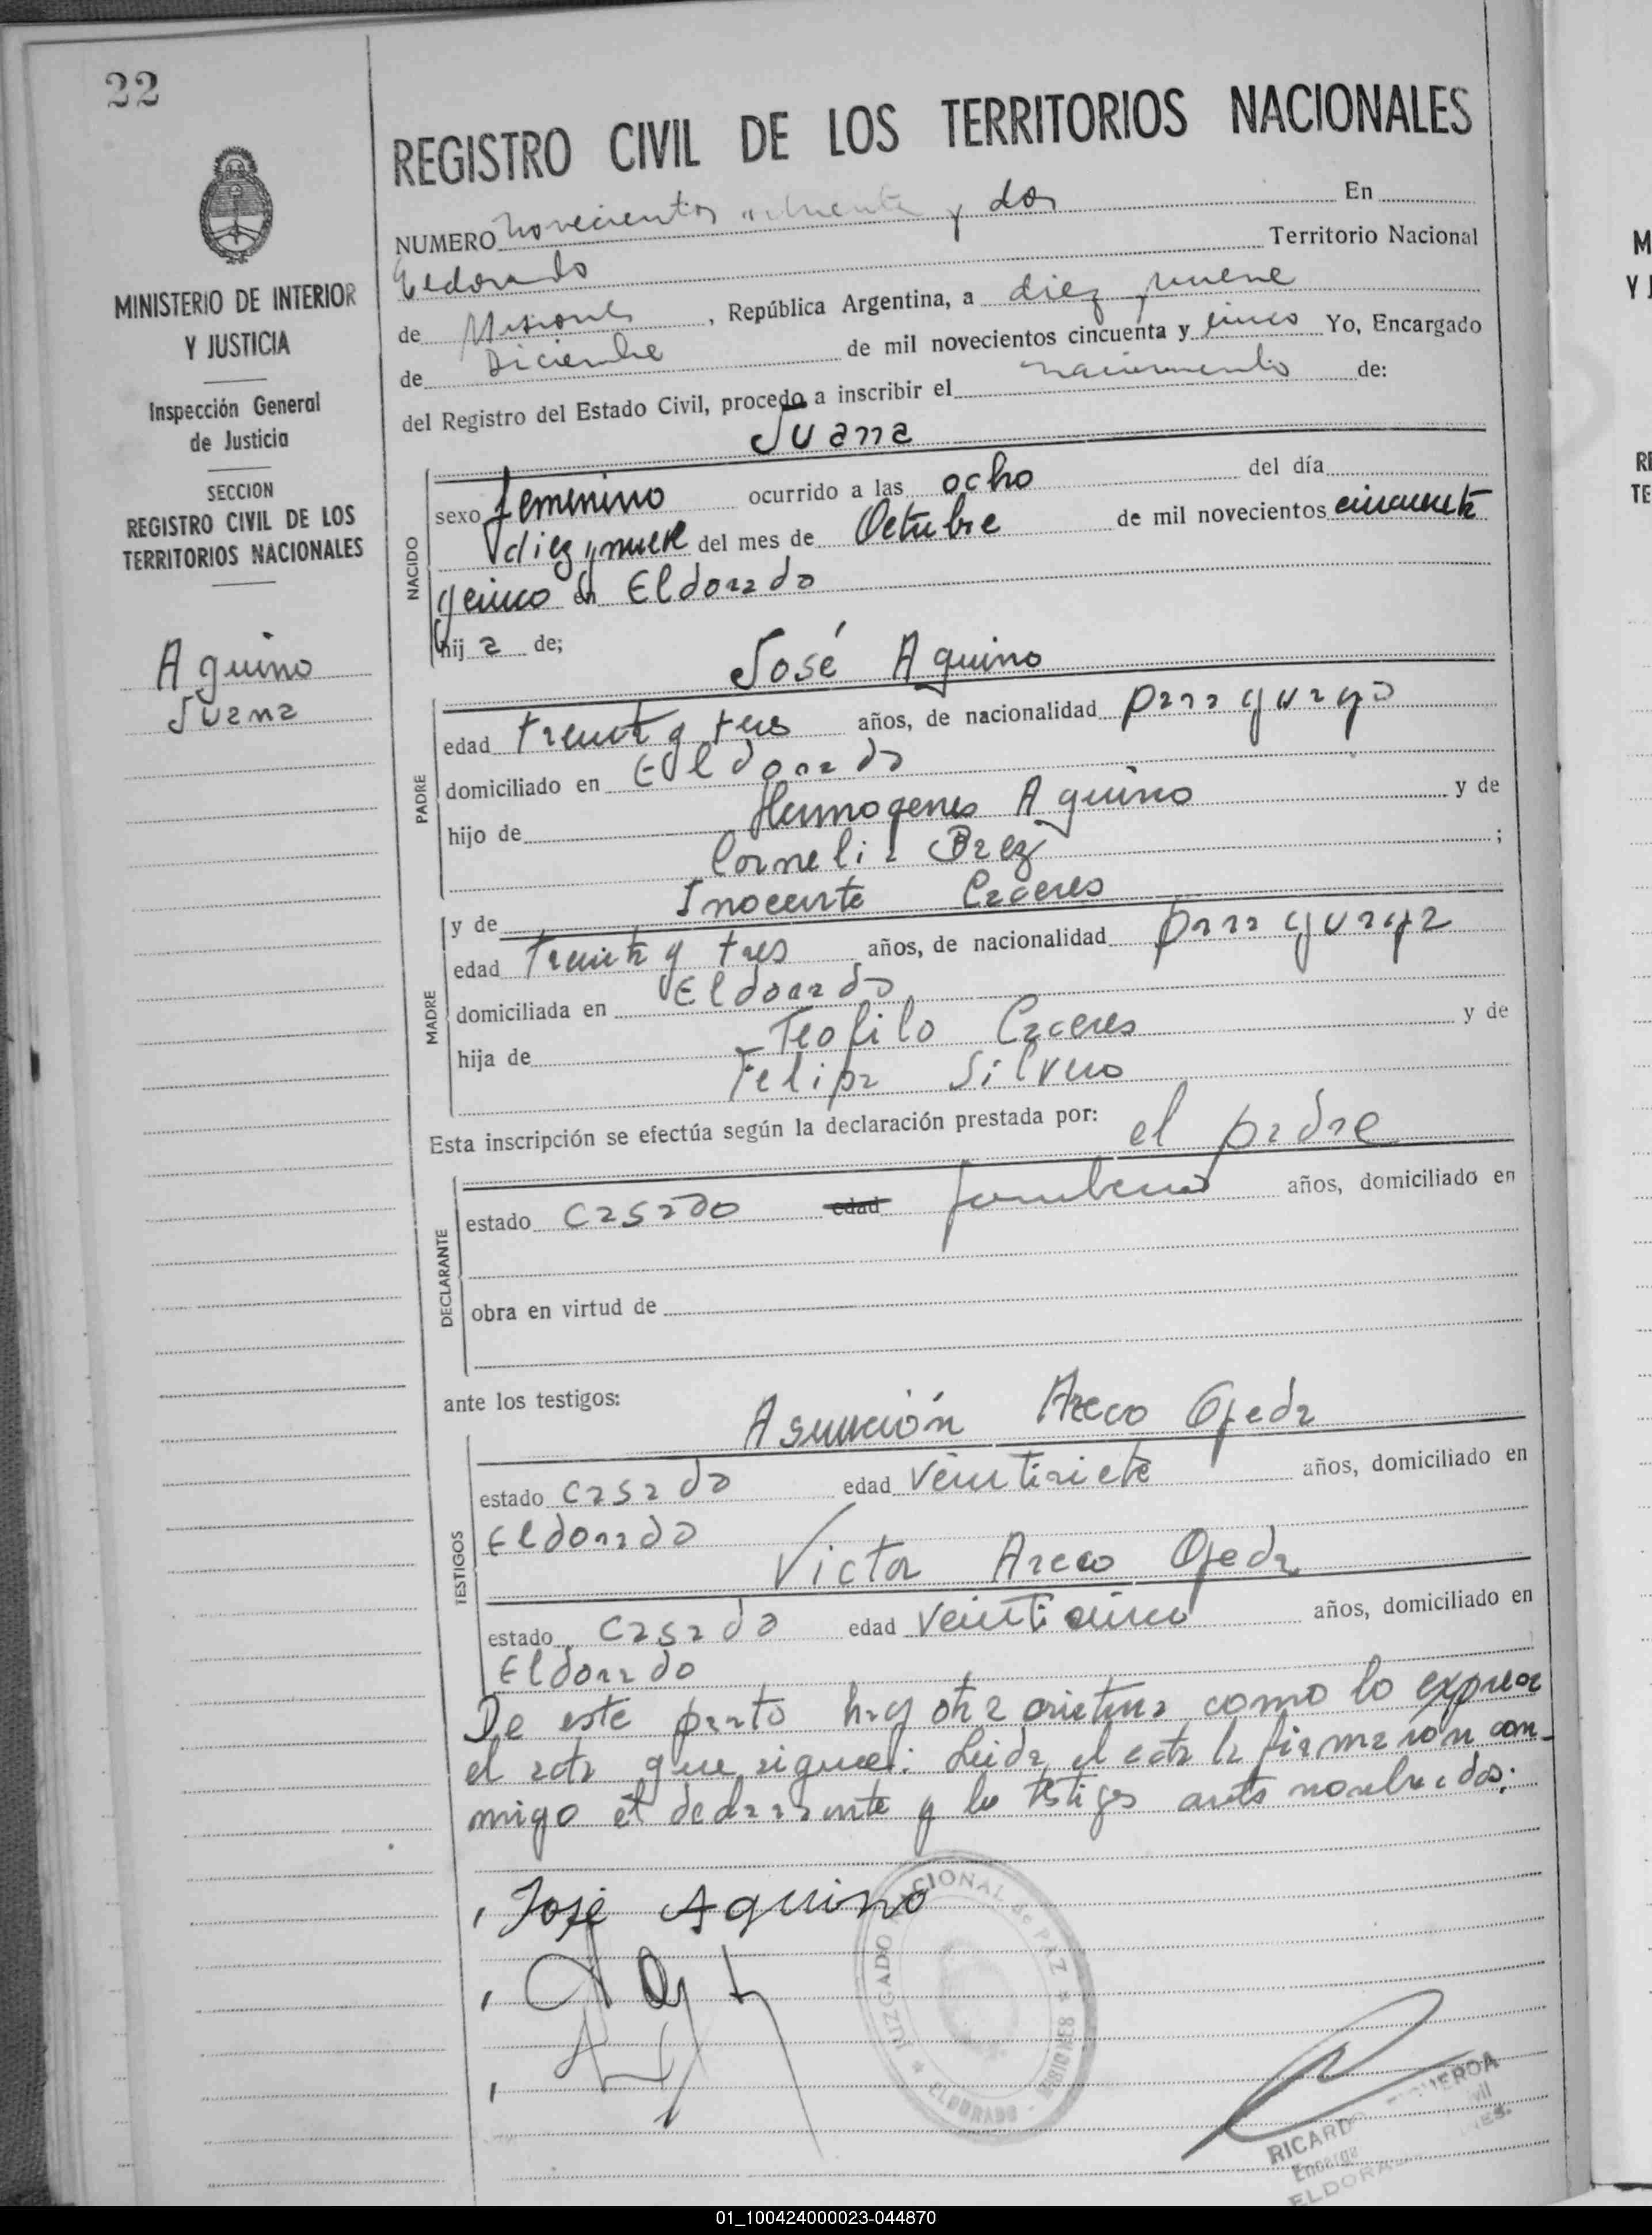 22
REGISTRO CIVIL DE LOS TERRITORIOS NACIONALES
MINISTERIO DE INTERIOR
Y JUSTICIA
Inspección General
de Justicia
SECCION
REGISTRO CIVIL DE LOS
TERRITORIOS NACIONALES
Aquino
Juana
NUMERO novecientos y dos En
Eldorado Territorio Nacional
de Misiones, República Argentina, a diez y nueve
de Diciembre de mil novecientos cincuenta y cinco Yo, Encargado
del Registro del Estado Civil, procedo a inscribir el nacimiento de:
Juana
NACIDO
sexo femenino ocurrido a las ocho del día
diez y nueve del mes de Octubre de mil novecientos cincuenta
y cinco en Eldorado
hij a de;
José Aquino
PADRE
edad treinta y tres años, de nacionalidad paraguayo
domiciliado en Eldorado
hijo de Hermogenes Aquino y de
Cornelia Baez ;
MADRE
y de Inocente Caceres
edad treinta y tres años, de nacionalidad paraguaya
domiciliada en Eldorado
hija de Teofilo Caceres y de
Felipa Silvero
Esta inscripción se efectúa según la declaración prestada por: el padre
DECLARANTE
estado casado edad años, domiciliado en
obra en virtud de
ante los testigos:
Asunción Areco Ojeda
TESTIGOS
estado casado edad veintisiete años, domiciliado en
Eldorado
Victor Areco Ojeda
estado casado edad veinticinco años, domiciliado en
Eldorado
De este parto hay otra como lo expresa
el acta que sigue: Leida el acta la firmaron con-
migo el declarante y los testigos antes nombrados:
José Aquino
JUZGADO NACIONAL DE PAZ * ELDORADO - MISIONES *
RICARDO
ELDORA
01_100424000023-044870